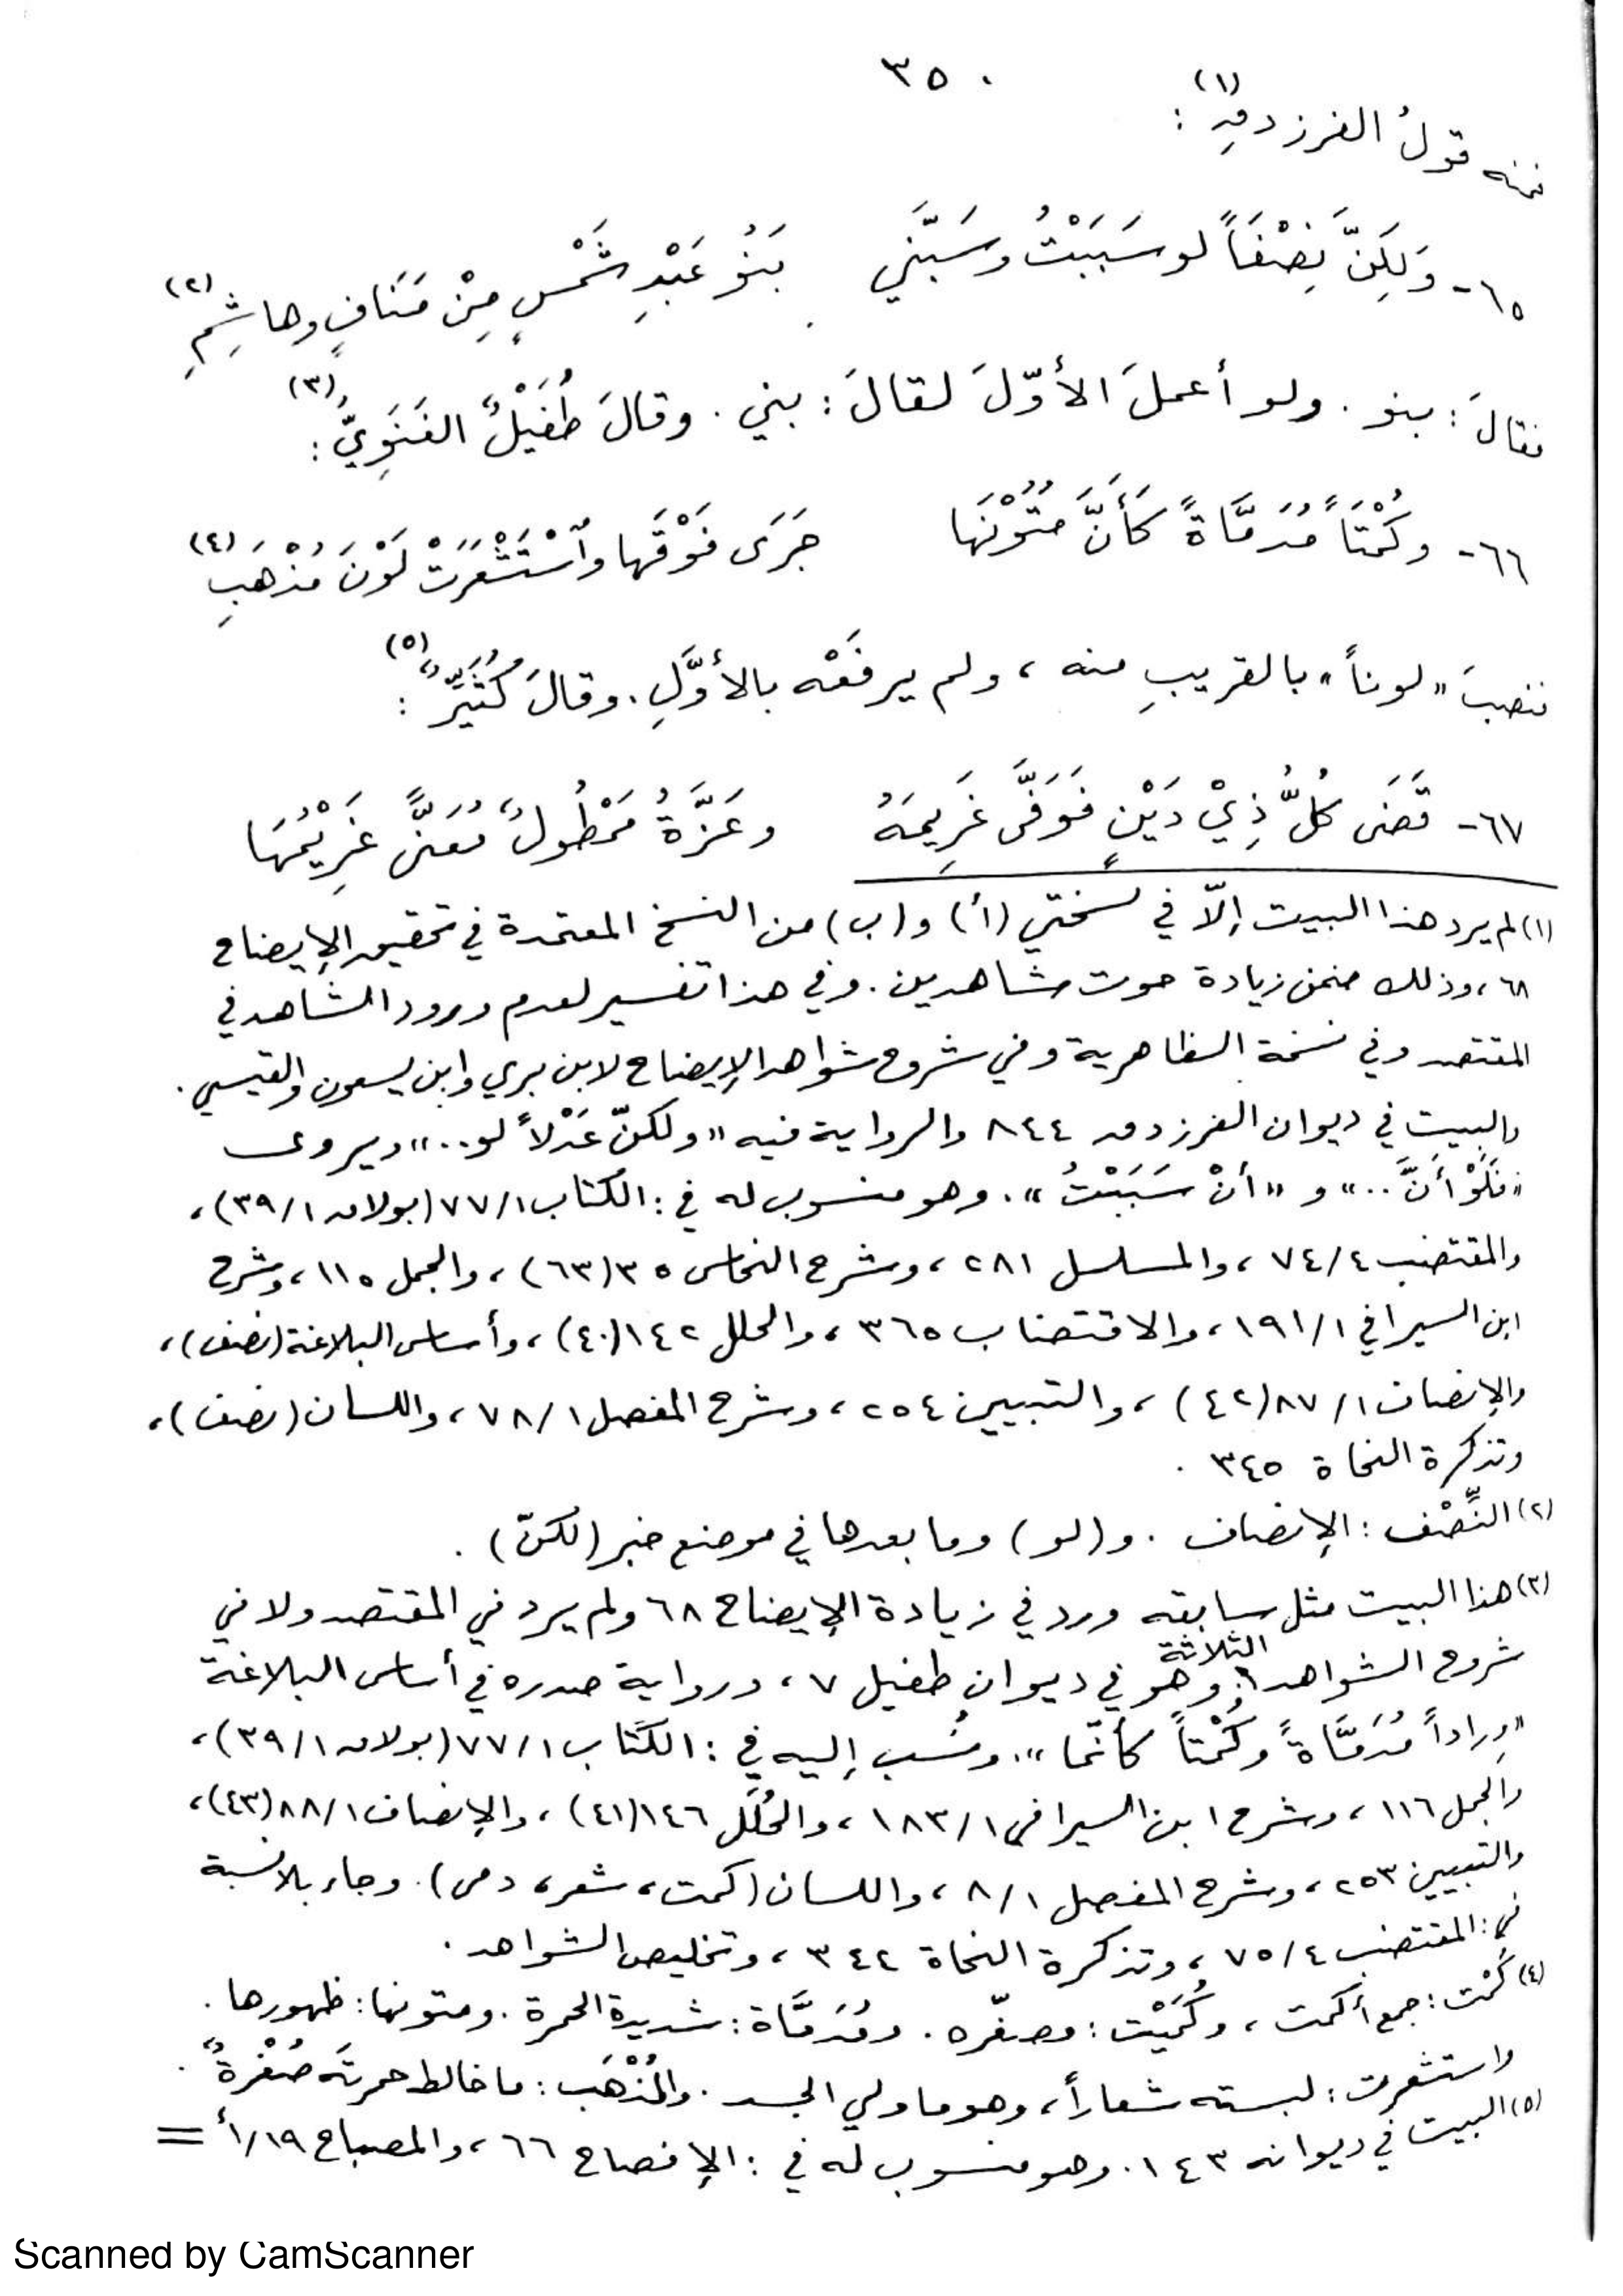 ٣٥٠
فمنه قولُ الفرزدقِ(١) :
٦٥- وَلَكِنَّ نِصْفَاً لو سَبَبْتُ وسَبَّنَي بَنُو عَبْدِ شَمْسٍ مِنْ مَنَافٍ وهاشِمِ(٢)
فقالَ : بنو . ولو أعملَ الأوّلَ لقالَ : بني . وقالَ طُفَيْلٌ الغَنَوِيُّ(٣) :
٦٦- وكُمْتَاً مُدَمَّاةً كَأَنَّ مُتُوْنَهَا جَرَى فَوْقَها واسْتَشْعَرَتْ لَوْنَ مُذْهَبِ(٤)
فنصبَ "لوناً" بالقريبِ منه ، ولم يرفَعْه بالأوَّلِ . وقالَ كُثَيِّرٌ(٥) :
٦٧- قَضَى كُلُّ ذِيْ دَيْنٍ فَوَفَّى غَرِيمَهُ وعَزَّةُ مَمْطُولٌ مُعَنًّى غَرِيْمُهَا
(١) لم يرد هذا البيت إلّا في نسختي (أ) و(ب) من النسخ المعتمدة في تحقيق الإيضاح
٦٨ ، وذلك ضمن زيادة حوت شاهدين . وفي هذا تفسير لعدم ورود الشاهد في
المقتصد وفي نسخة الظاهرية وفي شروح شواهد الإيضاح لابن بري وابن يسعون والقيسي .
والبيت في ديوان الفرزدق ٨٤٤ والرواية فيه "ولكنّ عَدْلاً لو .." ويروى
"فَلَوْ أَنَّ .." و "أنْ سَبَبْتُ" . وهو منسوب له في : الكتاب ٧٧/١ (بولاق ٣٩/١) ،
والمقتضب ٧٤/٤ ، والمسلسل ٢٨١ ، وشرح النحاس ٣٥ (٦٣) ، والجمل ١١٥ ، وشرح
ابن السيرافي ١٩١/١ ، والاقتضاب ٣٦٥ ، والحلل ١٤٢ (٤٠) ، وأساس البلاغة (نصف) ،
والإنصاف ٨٧/١ (٤٢) ، والتبيين ٢٥٤ ، وشرح المفصل ٧٨/١ ، واللسان (نصف) ،
وتذكرة النحاة ٣٤٥ .
(٢) النِّصْف : الإنصاف . و(لو) وما بعدها في موضع خبر (لكنّ) .
(٣) هذا البيت مثل سابقه ورد في زيادة الإيضاح ٦٨ ولم يرد في المقتصد ولا في
شروح الشواهد الثلاثة . وهو في ديوان طفيل ٧ ، ورواية صدره في أساس البلاغة
"وِراداً مُدَمَّاةً وكُمْتاً كأنّما" . ونُسب إليه في : الكتاب ٧٧/١ (بولاق ٣٩/١) ،
والجمل ١١٦ ، وشرح ابن السيرافي ١٨٣/١ ، والحُلَل ١٤٦ (٤١) ، والإنصاف ٨٨/١ (٤٣) ،
والتبيين ٢٥٣ ، وشرح المفصل ٨/١ ، واللسان (كمت ، شعر ، دمى) . وجاء بلا نسبة
في : المقتضب ٧٥/٤ ، وتذكرة النحاة ٣٤٢ ، وتخليص الشواهد .
(٤) كُمْت : جمع أكمت ، وكُمَيْت : مصغّره . ومُدَمَّاة : شديدة الحمرة . ومتونها : ظهورها .
واستشعرت : لبسته شعاراً ، وهو ما ولي الجسد . والمُذْهَب : ما خالط حمرتَه صُفْرةٌ .
(٥) البيت في ديوانه ١٤٣ . وهو منسوب له في : الإفصاح ٦٦ ، والمصباح ١٩/أ =
Scanned by CamScanner